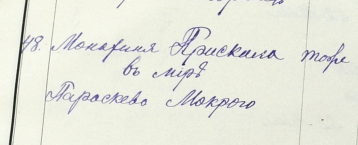 48. Монахиня Прискила тоже
въ мірѣ
Параскева Мокрого